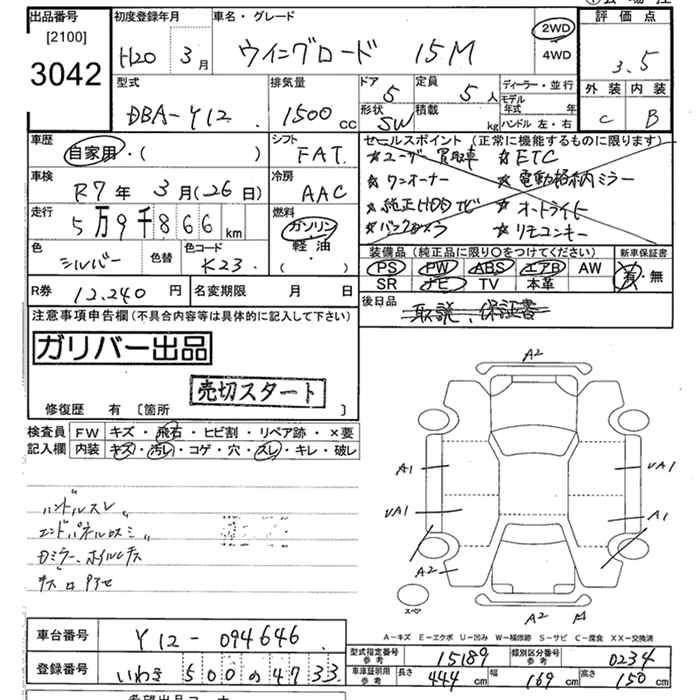 出品番号 初度登録年月 車名・グレード
[2100] 2WD 評価点
3042 H20 3月 ウイングロード 15M 4WD 3.5
型式 排気量 ドア 定員 ディーラー・並行 外装 内装
DBA-Y12 1500cc 5 5人 モデル年式 年 C B
形状 SW 積載 kg ハンドル 左・右
車歴 シフト セールスポイント (正常に機能するものに限ります)
自家用・( ) FAT ☆ユーザー買取車 ☆ETC
車検 冷房 ☆ワンオーナー ☆電動格納ミラー
R7年 3月(26日) AAC ☆純正HDDナビ ☆オートライト
走行 燃料 ☆バックカメラ ☆リモコンキー
5万9千866km ガソリン・
色 色替 色コード 軽油・ 装備品 (純正品に限り○をつけてください) 新車保証書
シルバー K23 ( ) PS PW ABS エアB AW 有・無
SR ナビ TV 本革
R券 12,240円 名変期限 月 日 後日品 取説、保証書
注意事項申告欄(不具合内容等は具体的に記入して下さい)
ガリバー出品
売切スタート
修復歴 有 [箇所 ]
検査員 FW キズ・飛石・ヒビ割・リペア跡・×要
記入欄 内装 キズ・汚レ・コゲ・穴・スレ・キレ・破レ
ハンドルスレ
A2
A1 UA1
UA1 A1
A2
スペア
A2
A-キズ E-エクボ U-凹み W-補修跡 S-サビ C-腐食 XX-交換済
車台番号 Y12-094646
型式指定番号 参考 15189 類別区分番号 参考 0234
登録番号 いわき 500 の 4733
車庫証明用 参考 長さ 444cm 幅 169cm 高さ 150cm